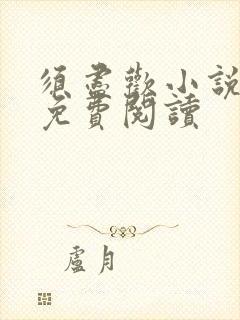 須盡歡小說
免費閱讀
盧月